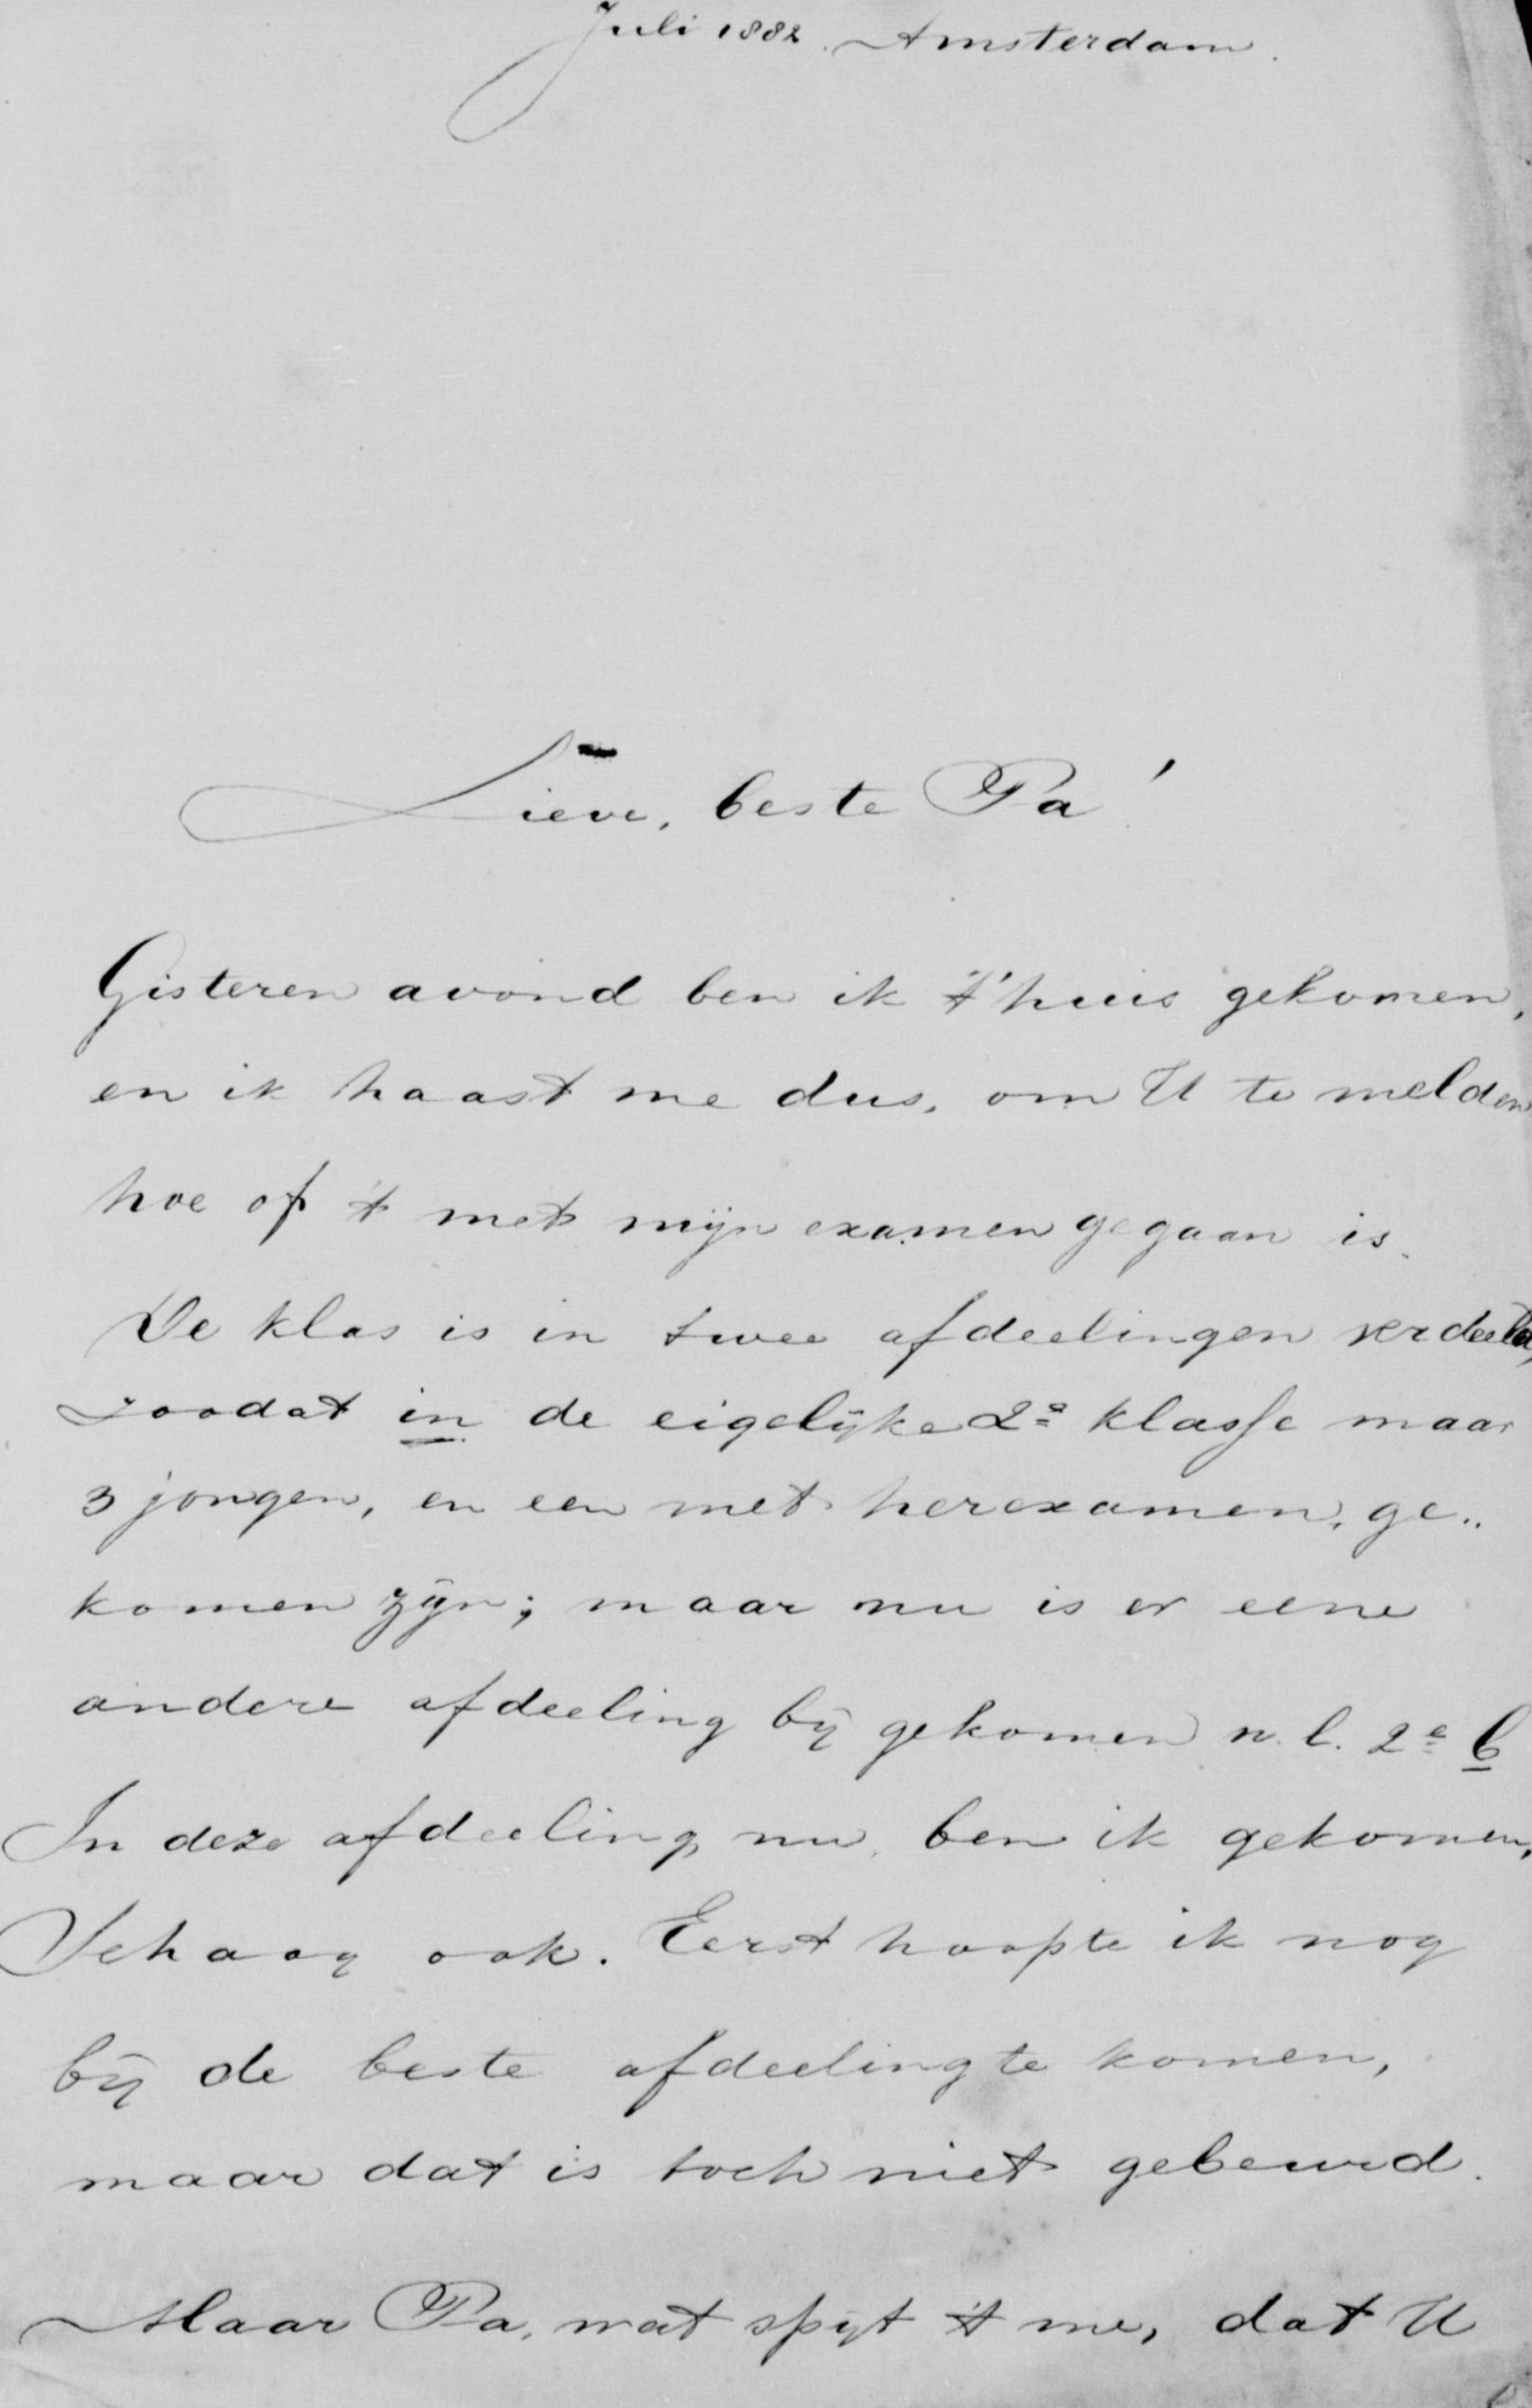 Juli 1882. Amsterdam.
Lieve, beste Pa!
Gisteren avond ben ik t'huis gekomen,
en ik haast me dus, om U te melden
hoe of 't met mijn examen gegaan is.
De klas is in twee afdeelingen verdeeld,
zoodat in de eigelijke 2e klasse maar
3 jongen, en een met herexamen, ge..
komen zijn; maar nu is er eene
andere afdeeling bij gekomen n.l. 2e b
In deze afdeeling nu, ben ik gekomen,
Schaag ook. Eerst hoopte ik nog
bij de beste afdeeling te komen,
maar dat is toch niet gebeurd.
Maar Pa, wat spijt 't me, dat U